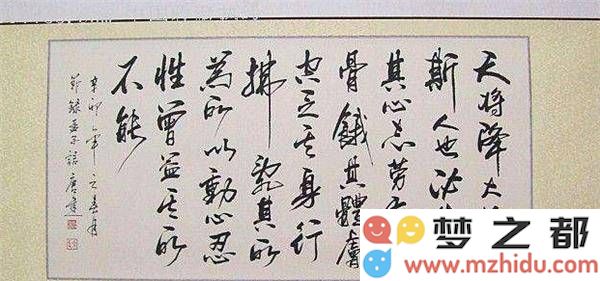 天将降大
斯人也必
其心志劳
骨餓其體膚
空乏其身行
拂亂其所
為所以動心忍
性曾益其所
不能
辛卯年之春月
節録孟子語唐建
梦之都
www.mzhidu.com